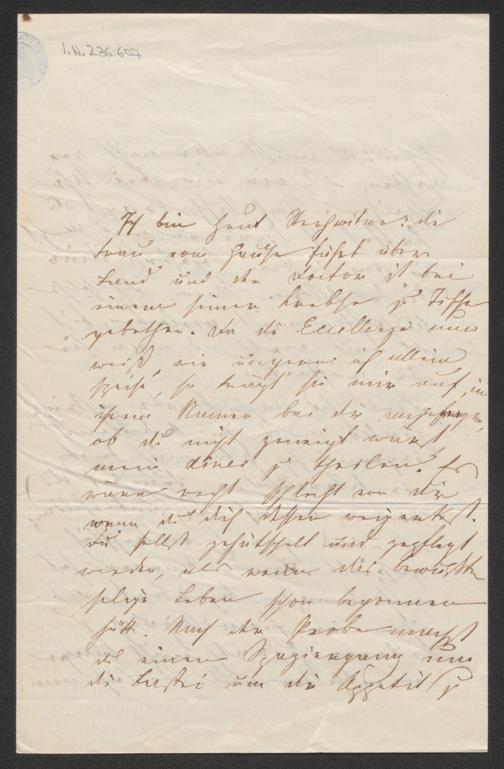 I.N. 236.607
Ich bin heut Strohwitwer: die
Frau vom Hause fährt über
Land und der Doctor ist bei
einem seiner Kranken zu Tische
gebethen. Da die Excellenza nun
weiß wie ungerne ich allein
speise, so trägt sie mir auf in
ihrem Namen bei dir anzufragen,
ob du nicht geneigt wärst
mein diner zu theilen. Es
wäre recht schlecht von dir
wenn du dich dessen weigertest.
Du sollst gehätschelt und gepflegt
werden, als wenn das bewußte
selige Leben schon begonnen
hätte. Nach der Probe machst
du einen Spaziergang um
die Bastei um dir Appetit zu